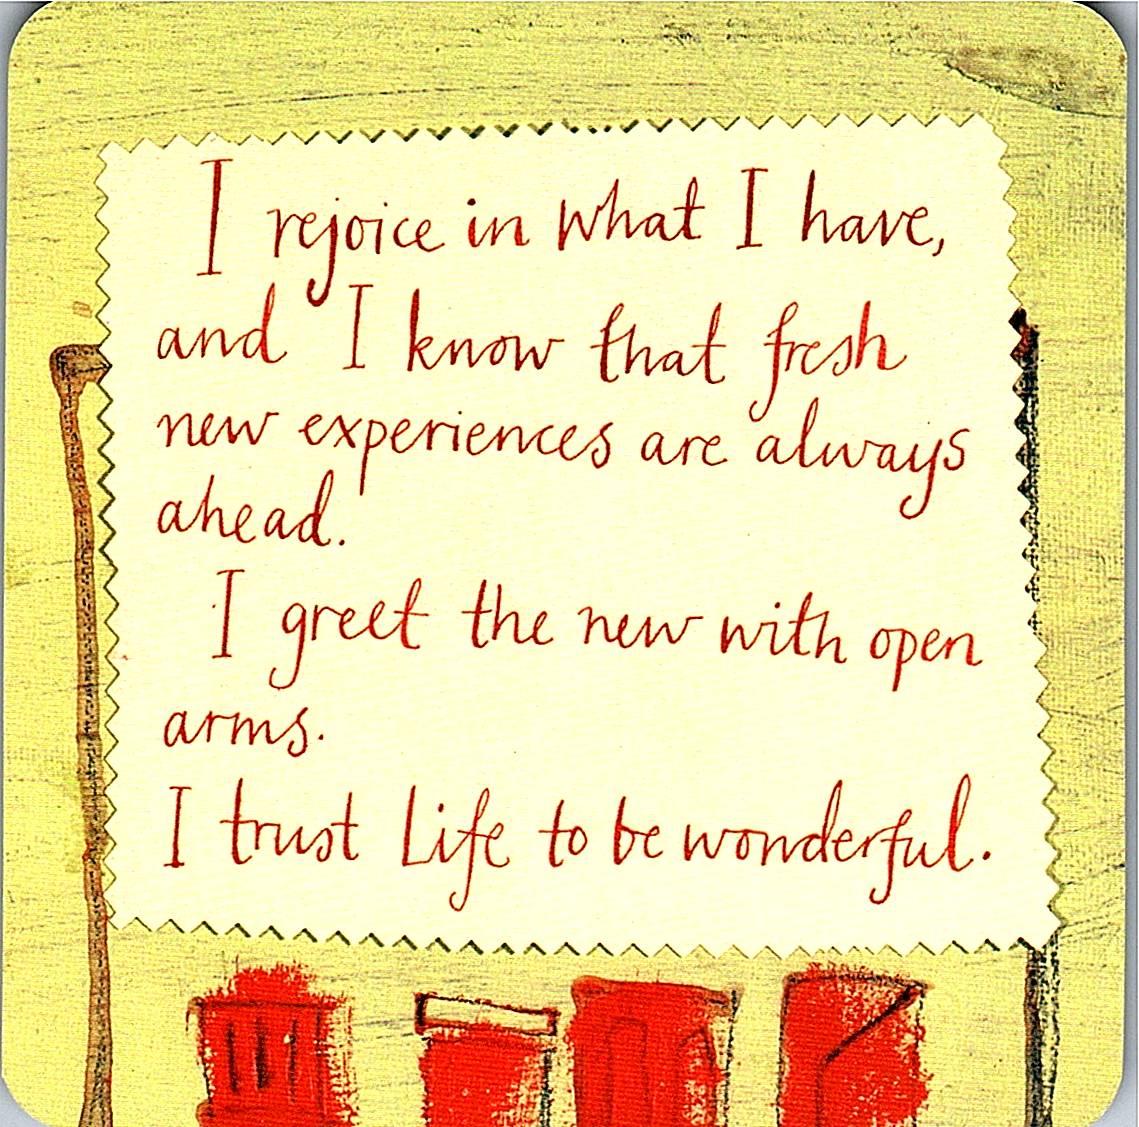 I rejoice in what I have,
and I know that fresh
new experiences are always
ahead.
I greet the new with open
arms.
I trust Life to be wonderful.